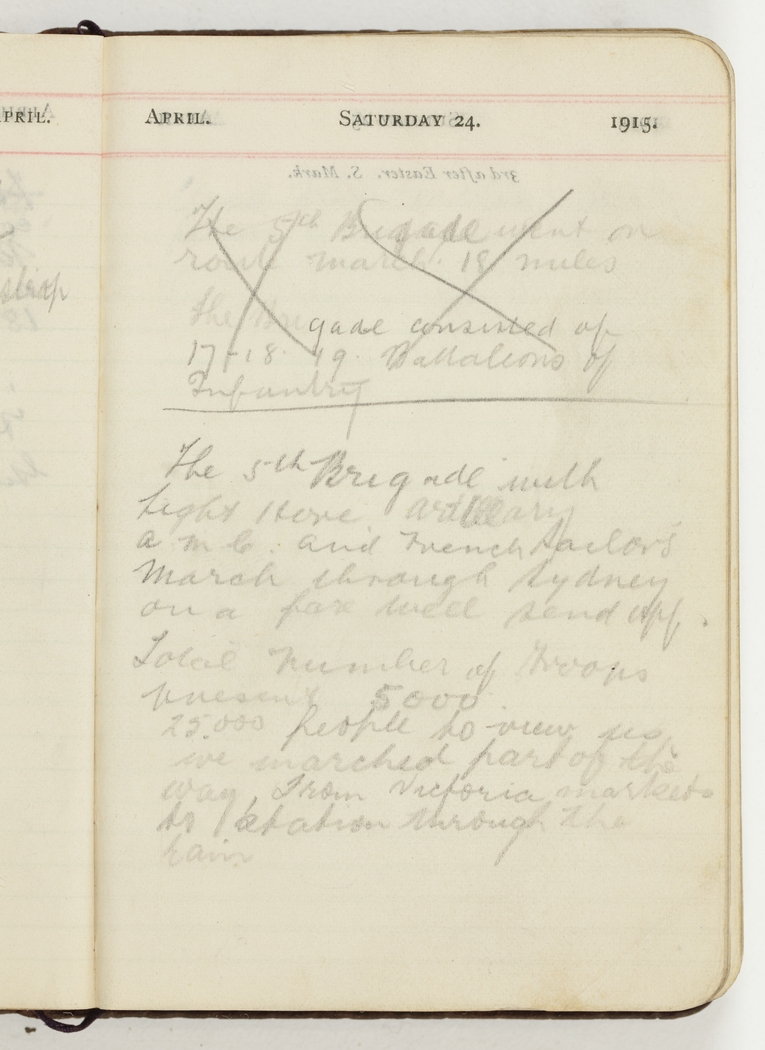 PRIL.
APRIL. SATURDAY 24. 1915.
3rd after Easter. S. Mark.
The 5th Brigade went on
route march. 18 miles
The Brigade consisted of
17-18. 19. Battalions of
Infantry
strap
18
The 5th Brigade with
Light Horse artillary
a m C. and French Sailors
March through Sydney
on a fare well send off.
Total Number of Troops
present 5000
25.000 people to view us
we marched part of the
way from Victoria markets
to station through the
rain